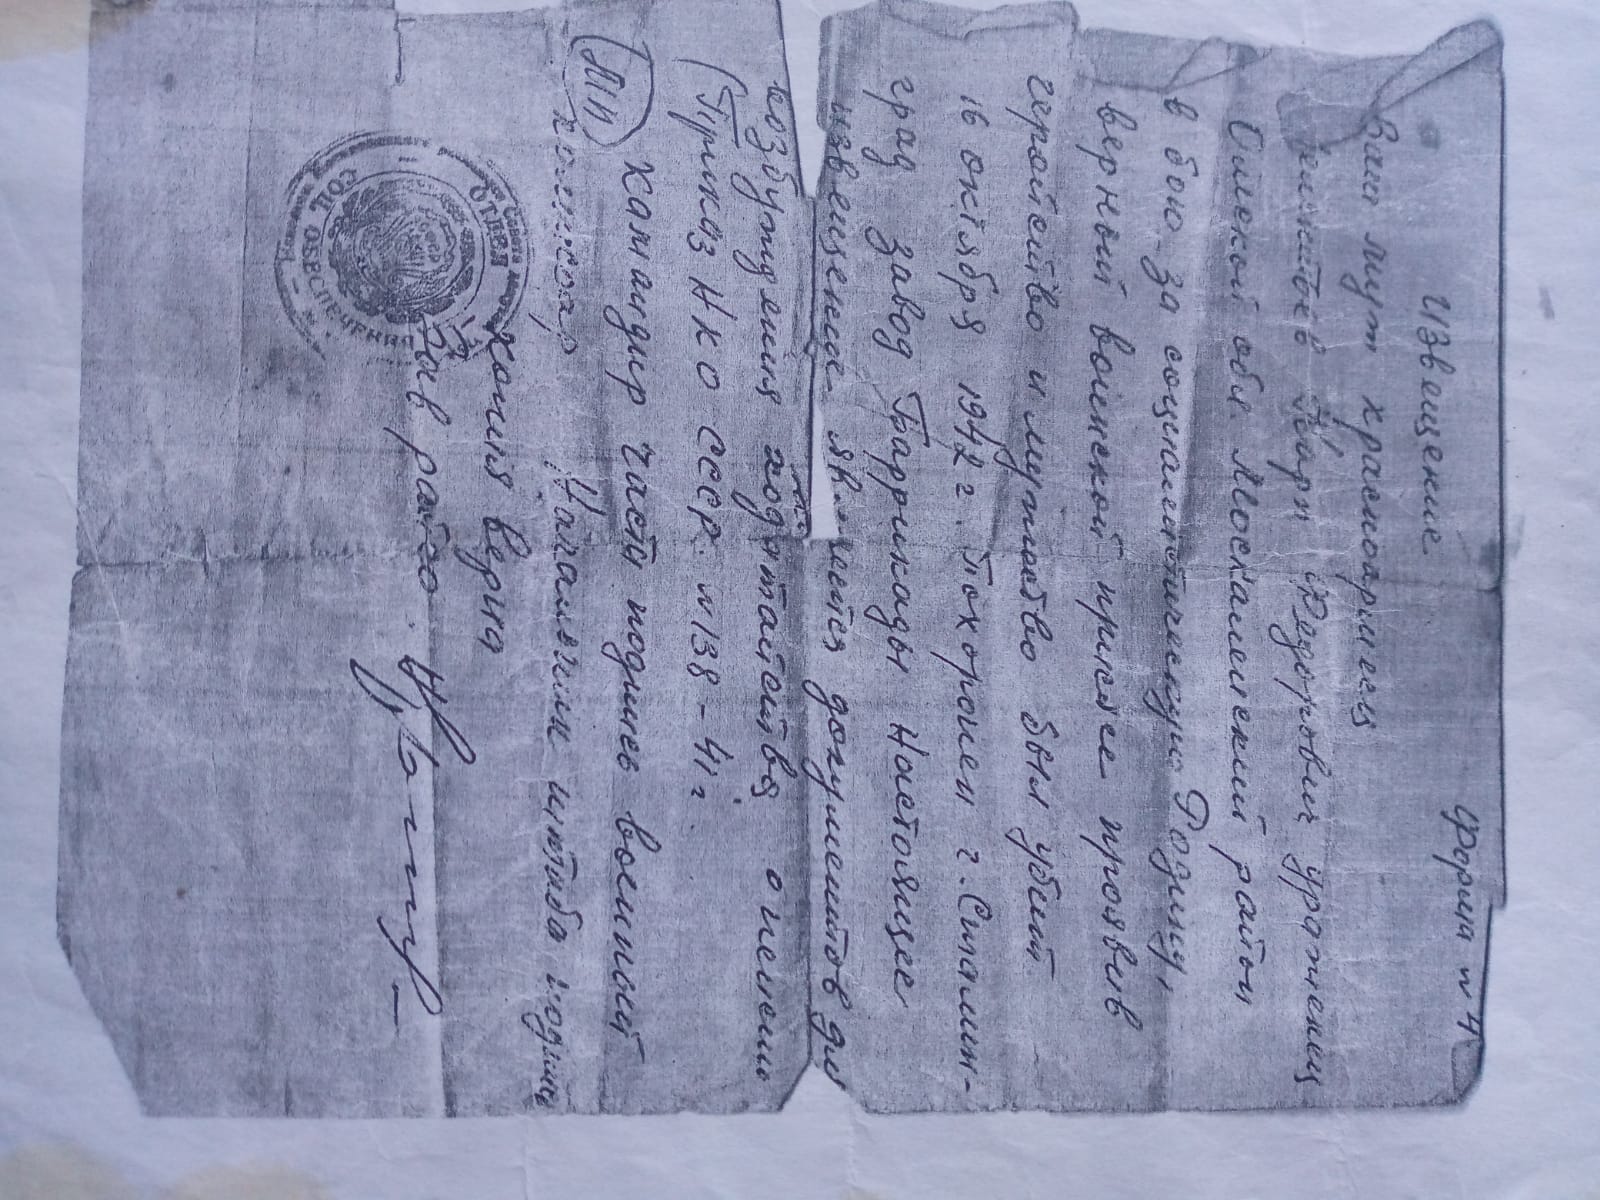 форма № 4
Извещение
Ваш муж красноармеец
Федорович уроженец
Омской обл Москаленский район
в бою за социалистическую Родину,
верный воинской присяге проявив
геройство и мужество был убит
16 октября 1942 г. Похоронен г. Сталин-
град завод Баррикады Настоящее
извещение является документом для
возбуждения ходатайства о пенсии
(Приказ НКО СССР №138-41 г
МП командир части подпись военный
комиссар Начальник штаба подпись
копия верна
Зав райсо
ОТДЕЛ
СОЦ ОБЕСПЕЧЕНИЯ